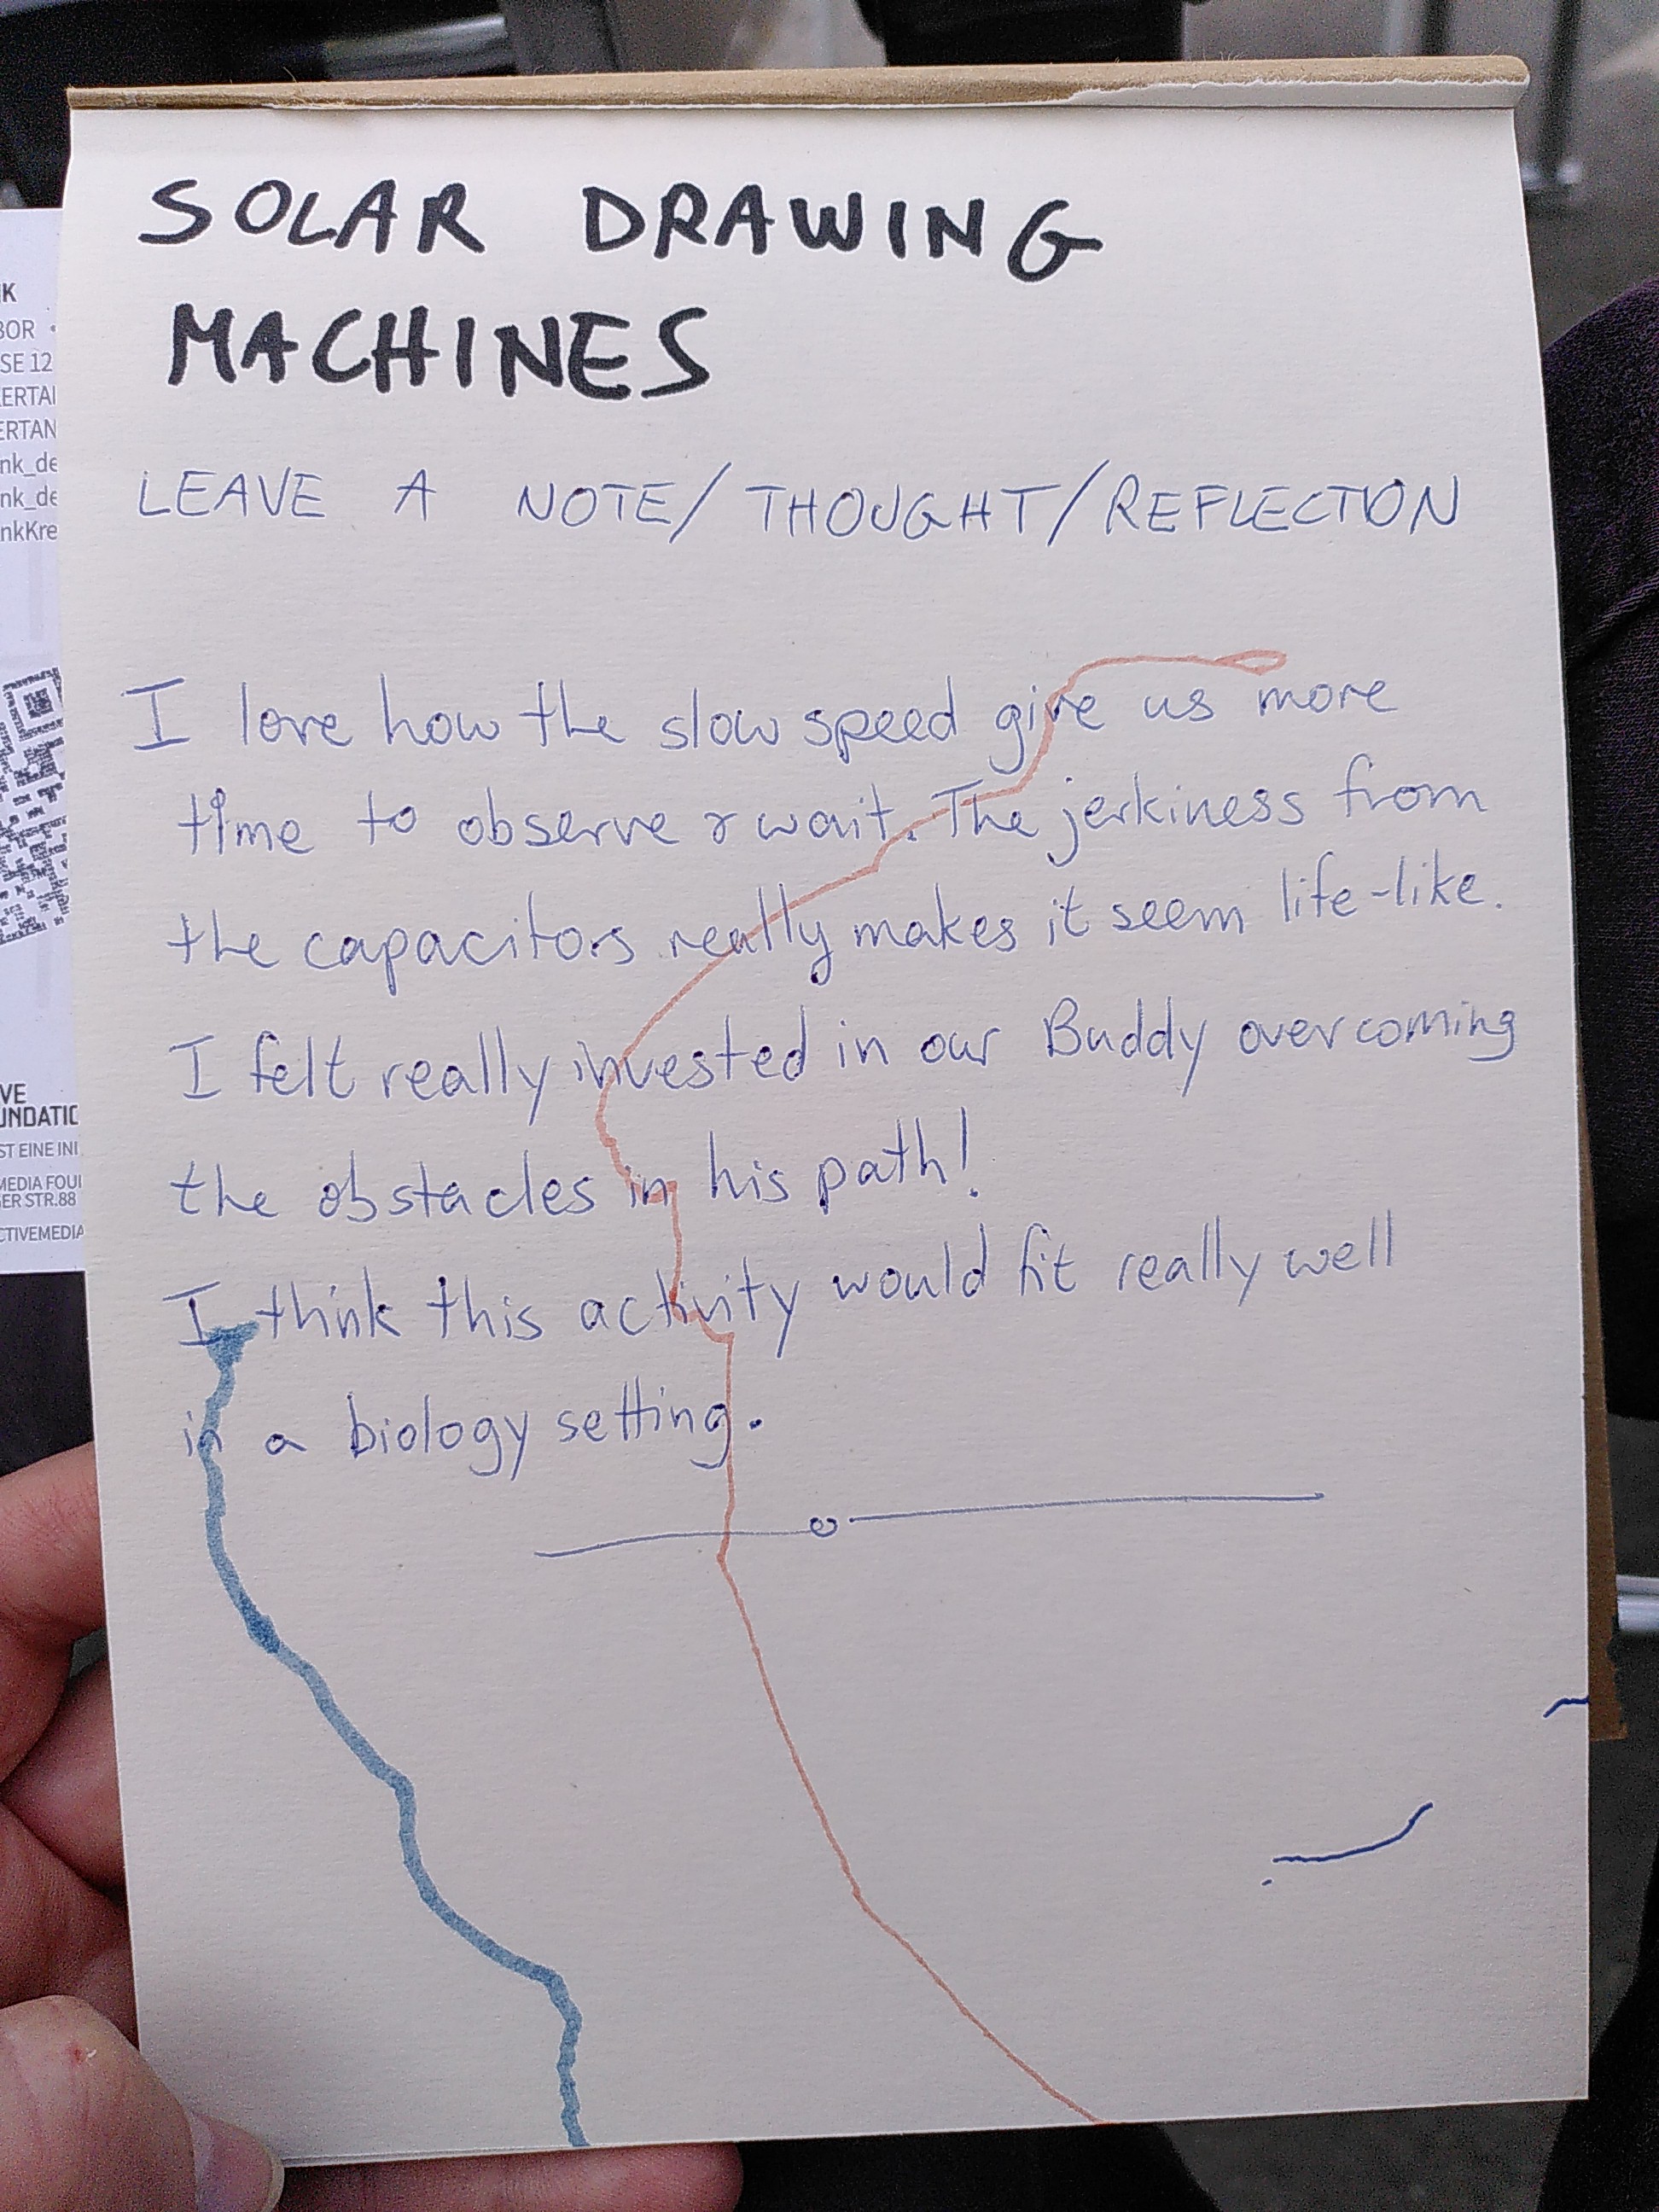 SOLAR DRAWING
MACHINES
LEAVE A NOTE/THOUGHT/REFLECTION
I love how the slow speed give us more
time to observe & wait. The jerkiness from
the capacitors really makes it seem life-like.
I felt really invested in our Buddy overcoming
the obstacles in his path!
I think this activity would fit really well
in a biology setting.
K
BOR
SE 12
ERTAI
ERTAN
nk_de
nk_de
nkKre
VE
UNDATIC
ST EINE INI
MEDIA FOU
GER STR.88
CTIVEMEDIA